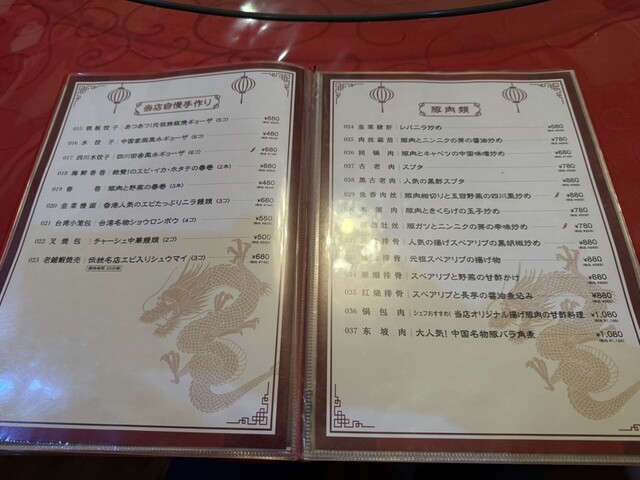 当店自慢手作り
015 鉄板餃子 あつあつ!元祖鉄板焼ギョーザ (5コ) ¥580
016 水餃子 中国家庭風水ギョーザ (6コ) ¥480
017 四川水餃子 四川田舎風水ギョーザ (6コ) ¥680
018 海鮮春巻 絶賛!のエビ・イカ・ホタテの春巻 (2本) ¥880
019 春巻 豚肉と野菜の春巻 (3本) ¥480
020 韭菜饅頭 香港人気のエビたっぷりニラ饅頭 (3コ) ¥680
021 台湾小笼包 台湾名物ショウロンポウ (4コ) ¥580
022 叉焼包 チャーシュ中華饅頭 (2コ) ¥500
023 老鋪蝦焼売 伝統名店エビ入りシュウマイ (3コ) ¥680
豚肉類
024 韭菜猪肝 レバニラ炒め ¥680
025 肉絲蒜苗 豚肉とニンニクの芽の醤油炒め ¥680
026 回鍋肉 豚肉とキャベツの中国味噌炒め ¥680
027 古老肉 スブタ ¥780
028 黒古老肉 人気の黒酢スブタ ¥880
029 魚香肉絲 豚肉細切りと玉葱野菜の四川風炒め ¥880
木須肉 豚肉ときくらげの玉子炒め ¥780
肚絲 豚ガツとニンニクの芽の辛味炒め ¥780
排骨 人気の揚げスペアリブの黒胡椒炒め ¥880
排骨 元祖スペアリブの揚げ物 ¥880
排骨 スペアリブと野菜の甘酢かけ ¥880
035 红焼排骨 スペアリブと長芋の醤油煮込み ¥880
036 锅包肉 シェフおすすめ!当店オリジナル揚げ豚肉の甘酢料理 ¥1,080
037 东坡肉 大人気!中国名物豚バラ角煮 ¥1,080